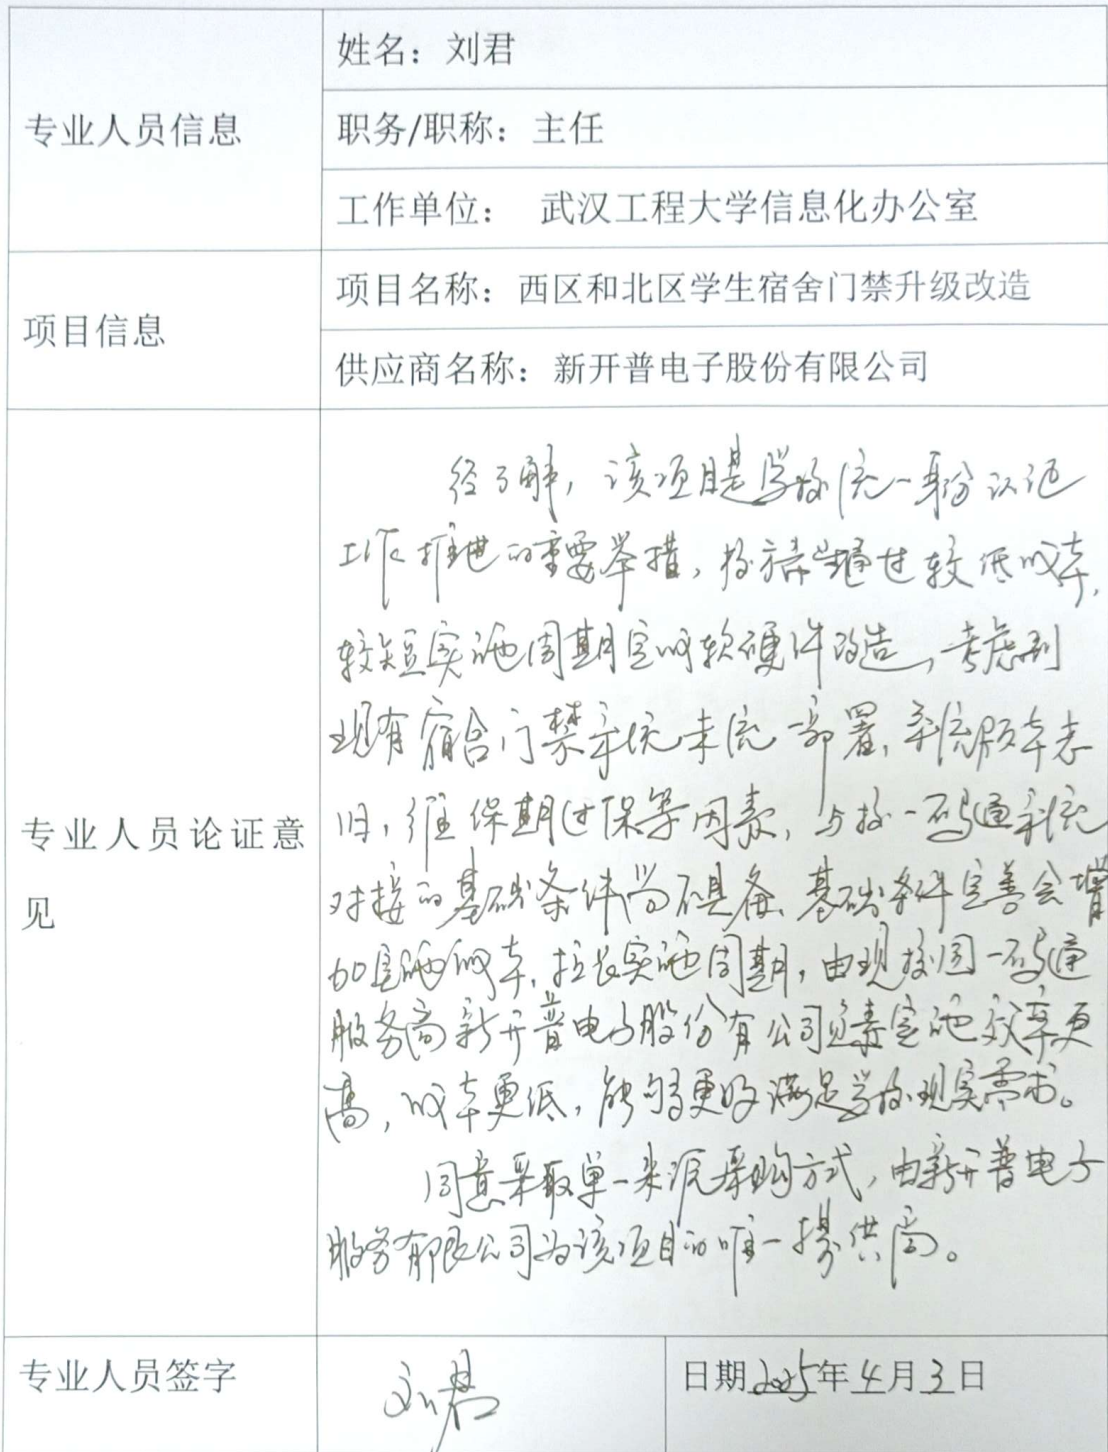 专业人员信息
姓名：刘君
职务/职称：主任
工作单位： 武汉工程大学信息化办公室
项目信息
项目名称：西区和北区学生宿舍门禁升级改造
供应商名称：新开普电子股份有限公司
专业人员论证意
见
经了解，该项目是学校统一身份认证
工作推进的重要举措，校方希望通过较低成本，
较短实施周期完成软硬件改造，考虑到
现有宿舍门禁系统未统一部署，系统版本老
旧，维保期过保等因素，与校一码通系统
对接的基础条件尚不具备，基础条件完善会增
加实施成本，拉长实施周期，由现校园一码通
服务商新开普电子股份有公司负责实施效率更
高，成本更低，能够更好满足学校现实需求。
同意采取单一来源采购方式，由新开普电子
服务有限公司为该项目的唯一提供商。
专业人员签字
刘君
日期2025年4月3日